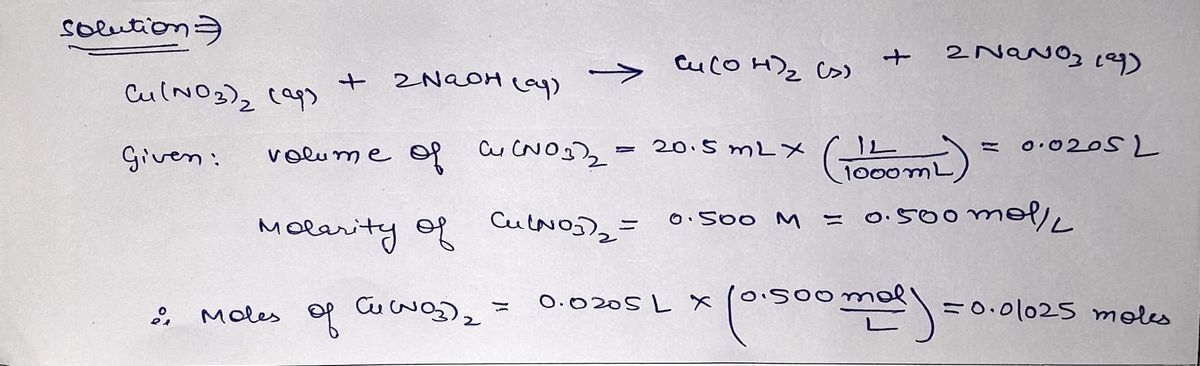 Solution ⇒
Cu(NO3)2 (aq) + 2NaOH (aq) → Cu(OH)2 (s) + 2NaNO3 (aq)
Given: volume of Cu(NO3)2 = 20.5 mL × (1L/1000mL) = 0.0205 L
Molarity of Cu(NO3)2 = 0.500 M = 0.500 mol/L
∴ Moles of Cu(NO3)2 = 0.0205 L × (0.500 mol/L) = 0.01025 moles